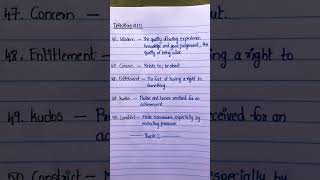 46. Wisdom — The quality of having experience
knowledge and good judgement, the
quality of being wise.
47. Concern — Relate to; be about.
48. Entitlement — The fact of having a right to
something.
49. kudos — Praise and honor received for an
achievement.
50. Constrict — Make narrower, especially by
encircling pressure.
47. Concern —
48. Entitlement —
49. kudos —
50. Constrict —
a right to
ceived for an